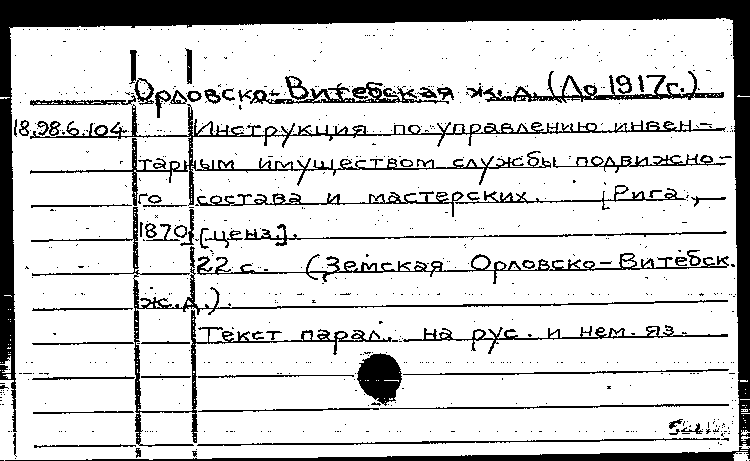 Орловско-Витебская ж.д. (До 1917г.)
18.98.6.104 Инструкция по управлению инвен-
тарным имуществом службы подвижно-
го состава и мастерских. [Рига,
1870, [ценз].
22 с. (Земская Орловско-Витебск.
ж.д.).
Текст парал. на рус. и нем. яз.